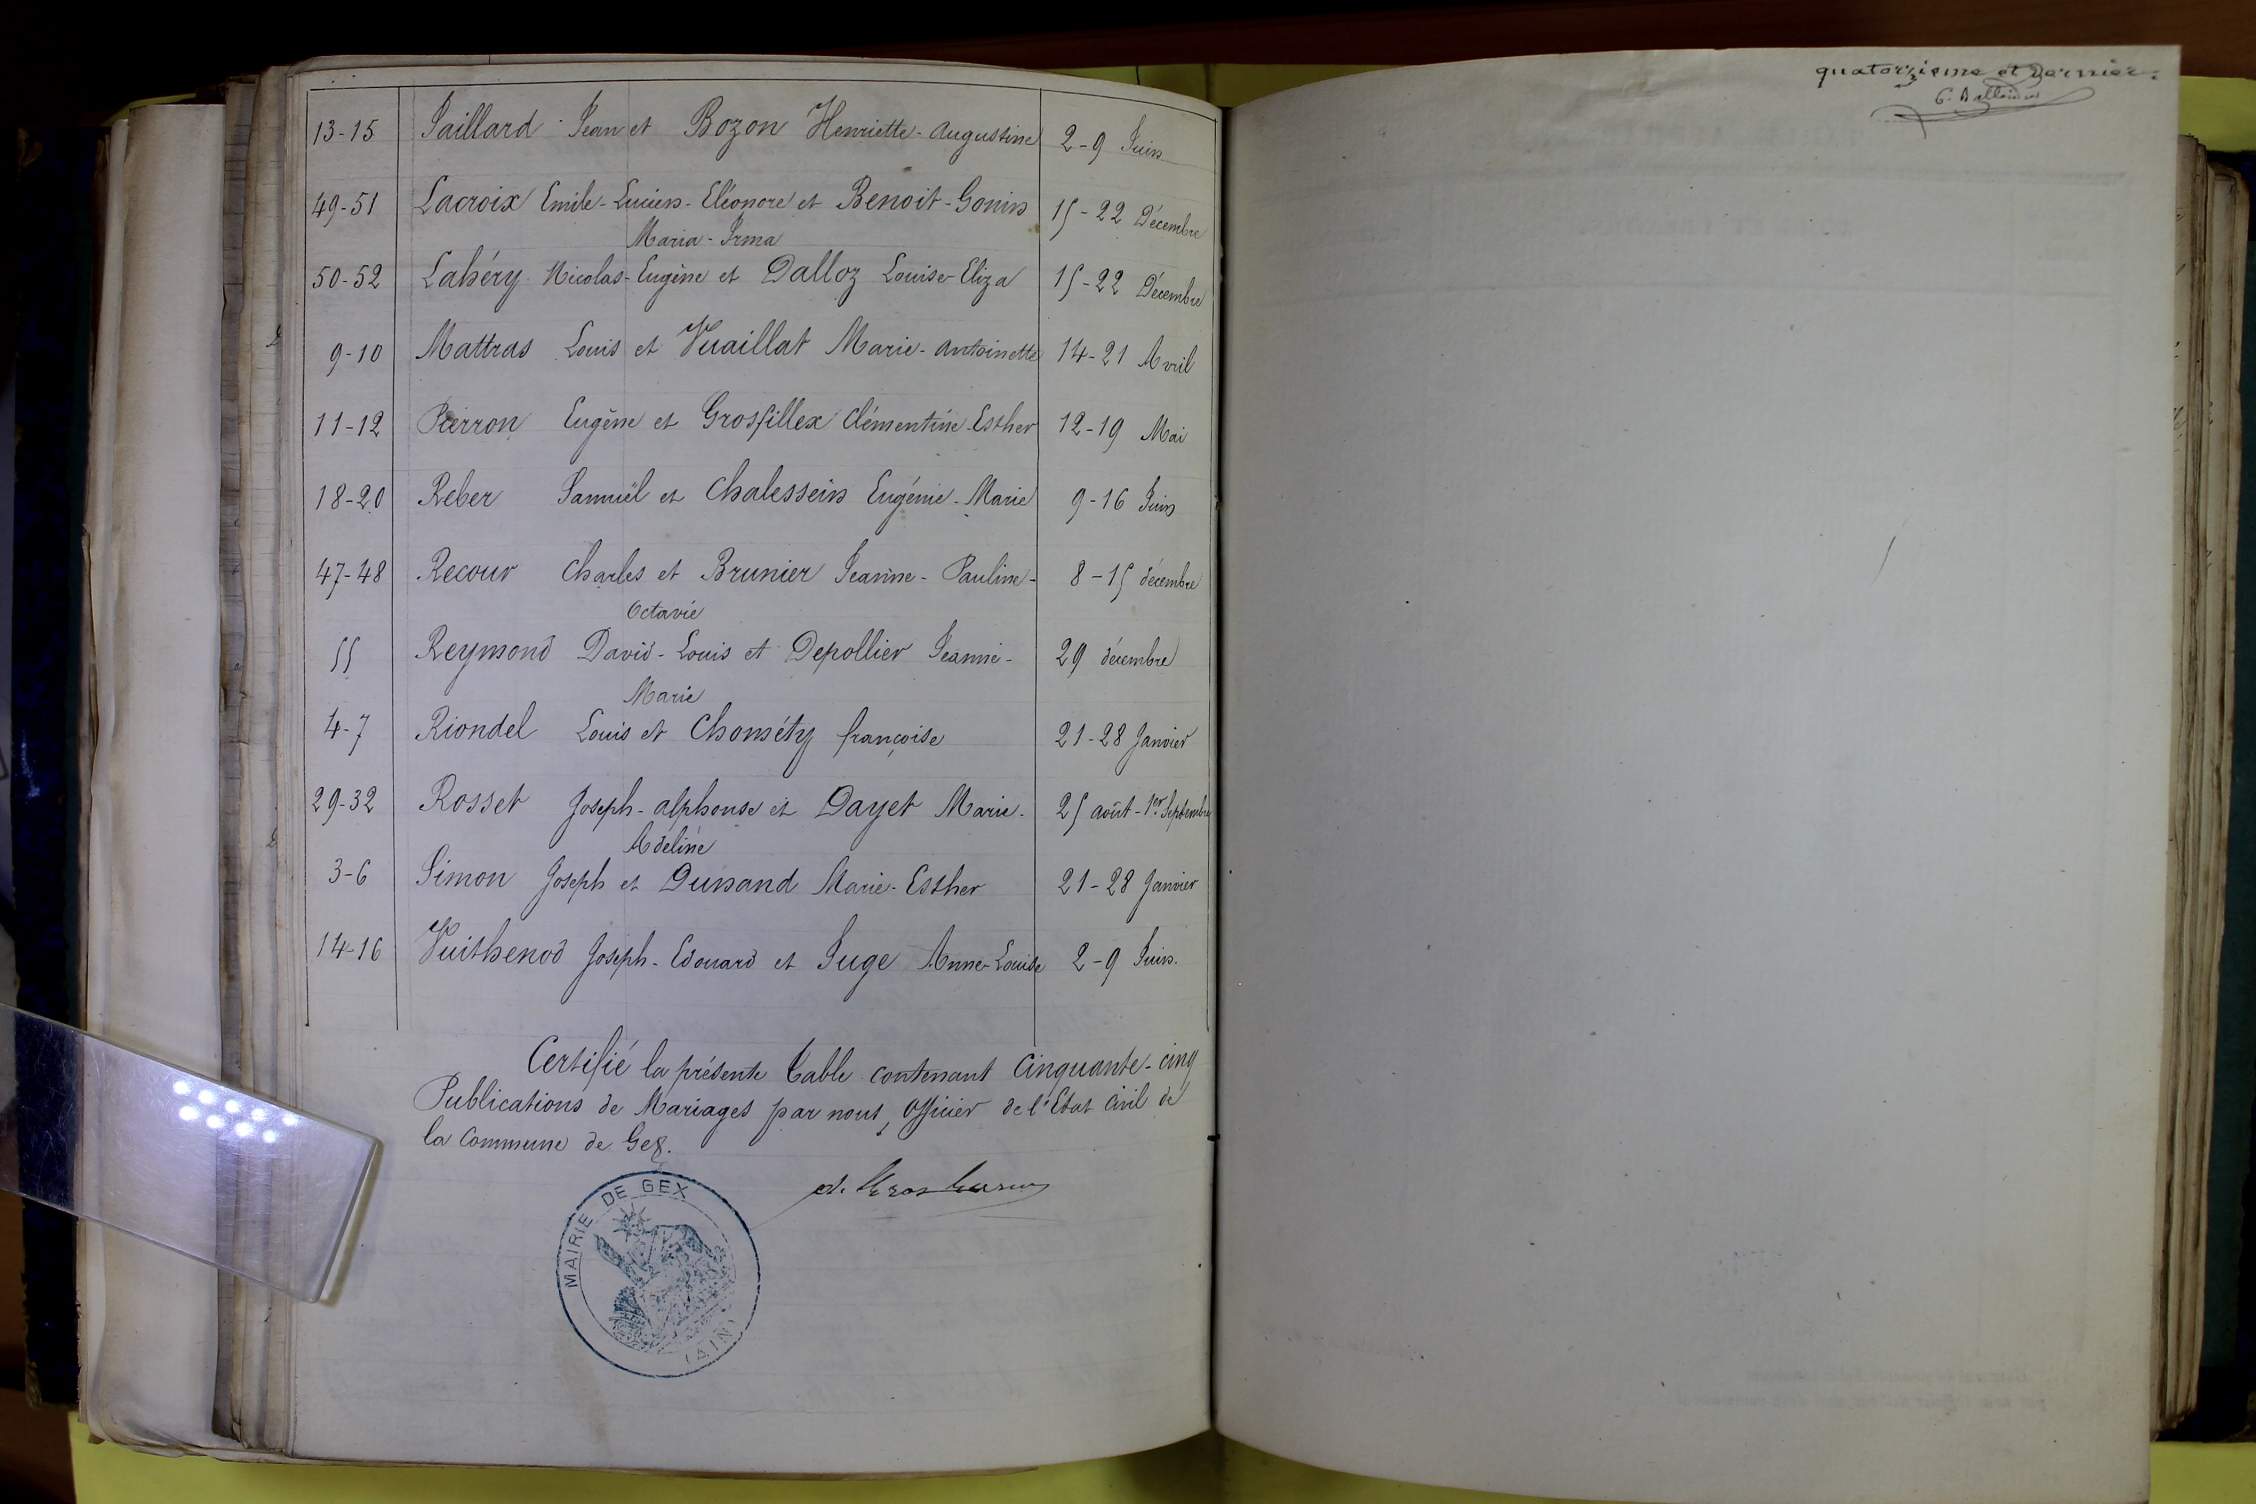 13-15 Jaillard Jean et Bozon Henriette-Augustine 2-9 Juin
49-51 Lacroix Emile-Lucien-Eléonore et Benoit-Gonin 15-22 Décembre
Maria-Irma
50-52 Lahéry Nicolas-Eugène et Dalloz Louise-Eliza 15-22 Décembre
9-10 Mattras Louis et Vuaillat Marie-Antoinette 14-21 Avril
11-12 Pierron Eugène et Grosfillex Clémentine-Esther 12-19 Mai
18-20 Reber Samuël et Chalessein Eugénie-Marie 9-16 Juin
47-48 Recour Charles et Brunier Jeanne-Pauline- 8-15 décembre
Octavie
55 Reymond David-Louis et Depollier Jeanne- 29 décembre
Marie
4-7 Riondel Louis et Chométy françoise 21-28 Janvier
29-32 Rosset Joseph-alphonse et Dayet Marie- 25 août-1er Septembre
Adéline
3-6 Simon Joseph et Dunand Marie-Esther 21-28 Janvier
14-16 Vuithenod Joseph-Edouard et Juge Anne-Louise 2-9 Juin.
Certifié la présente Table contenant Cinquante-cinq
Publications de Mariages par nous, Officier de l'Etat Civil de
la Commune de Gex.
MAIRIE DE GEX
(AIN)
quatorzième et dernier.